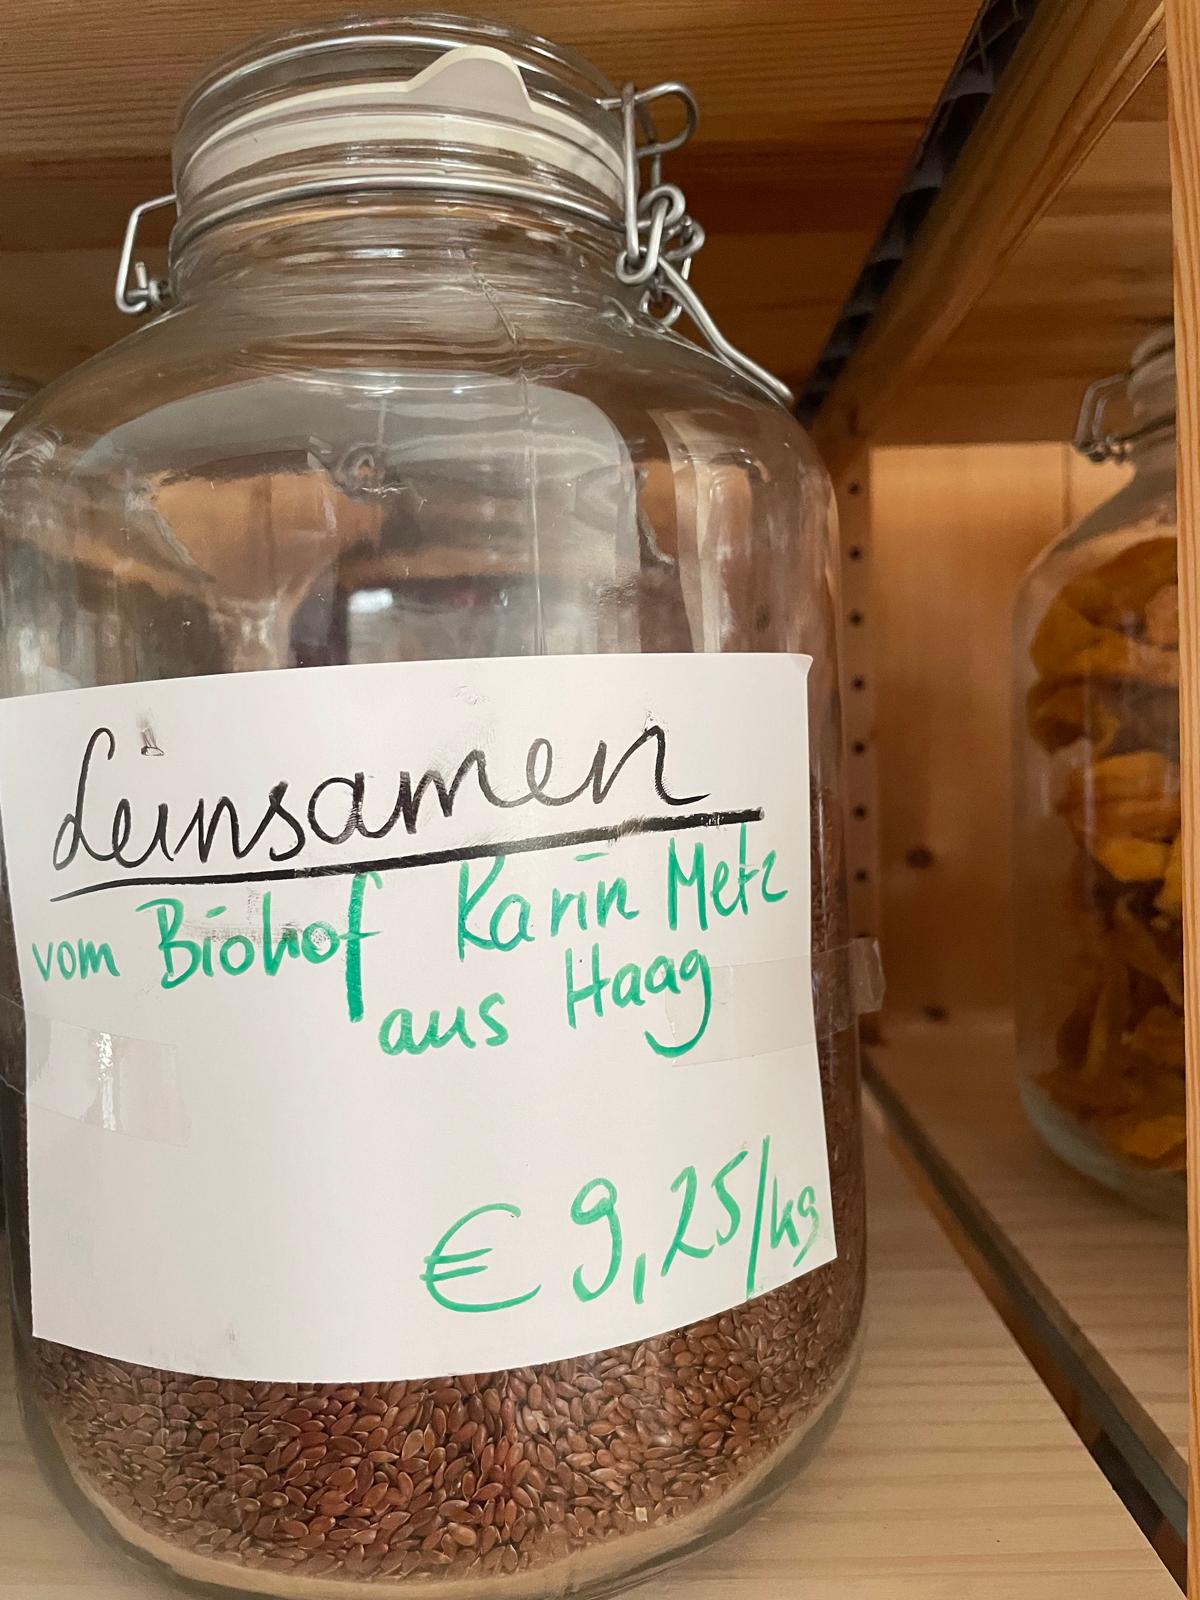 Leinsamen
vom Biohof Karin Metz
aus Haag
€ 9,25/kg